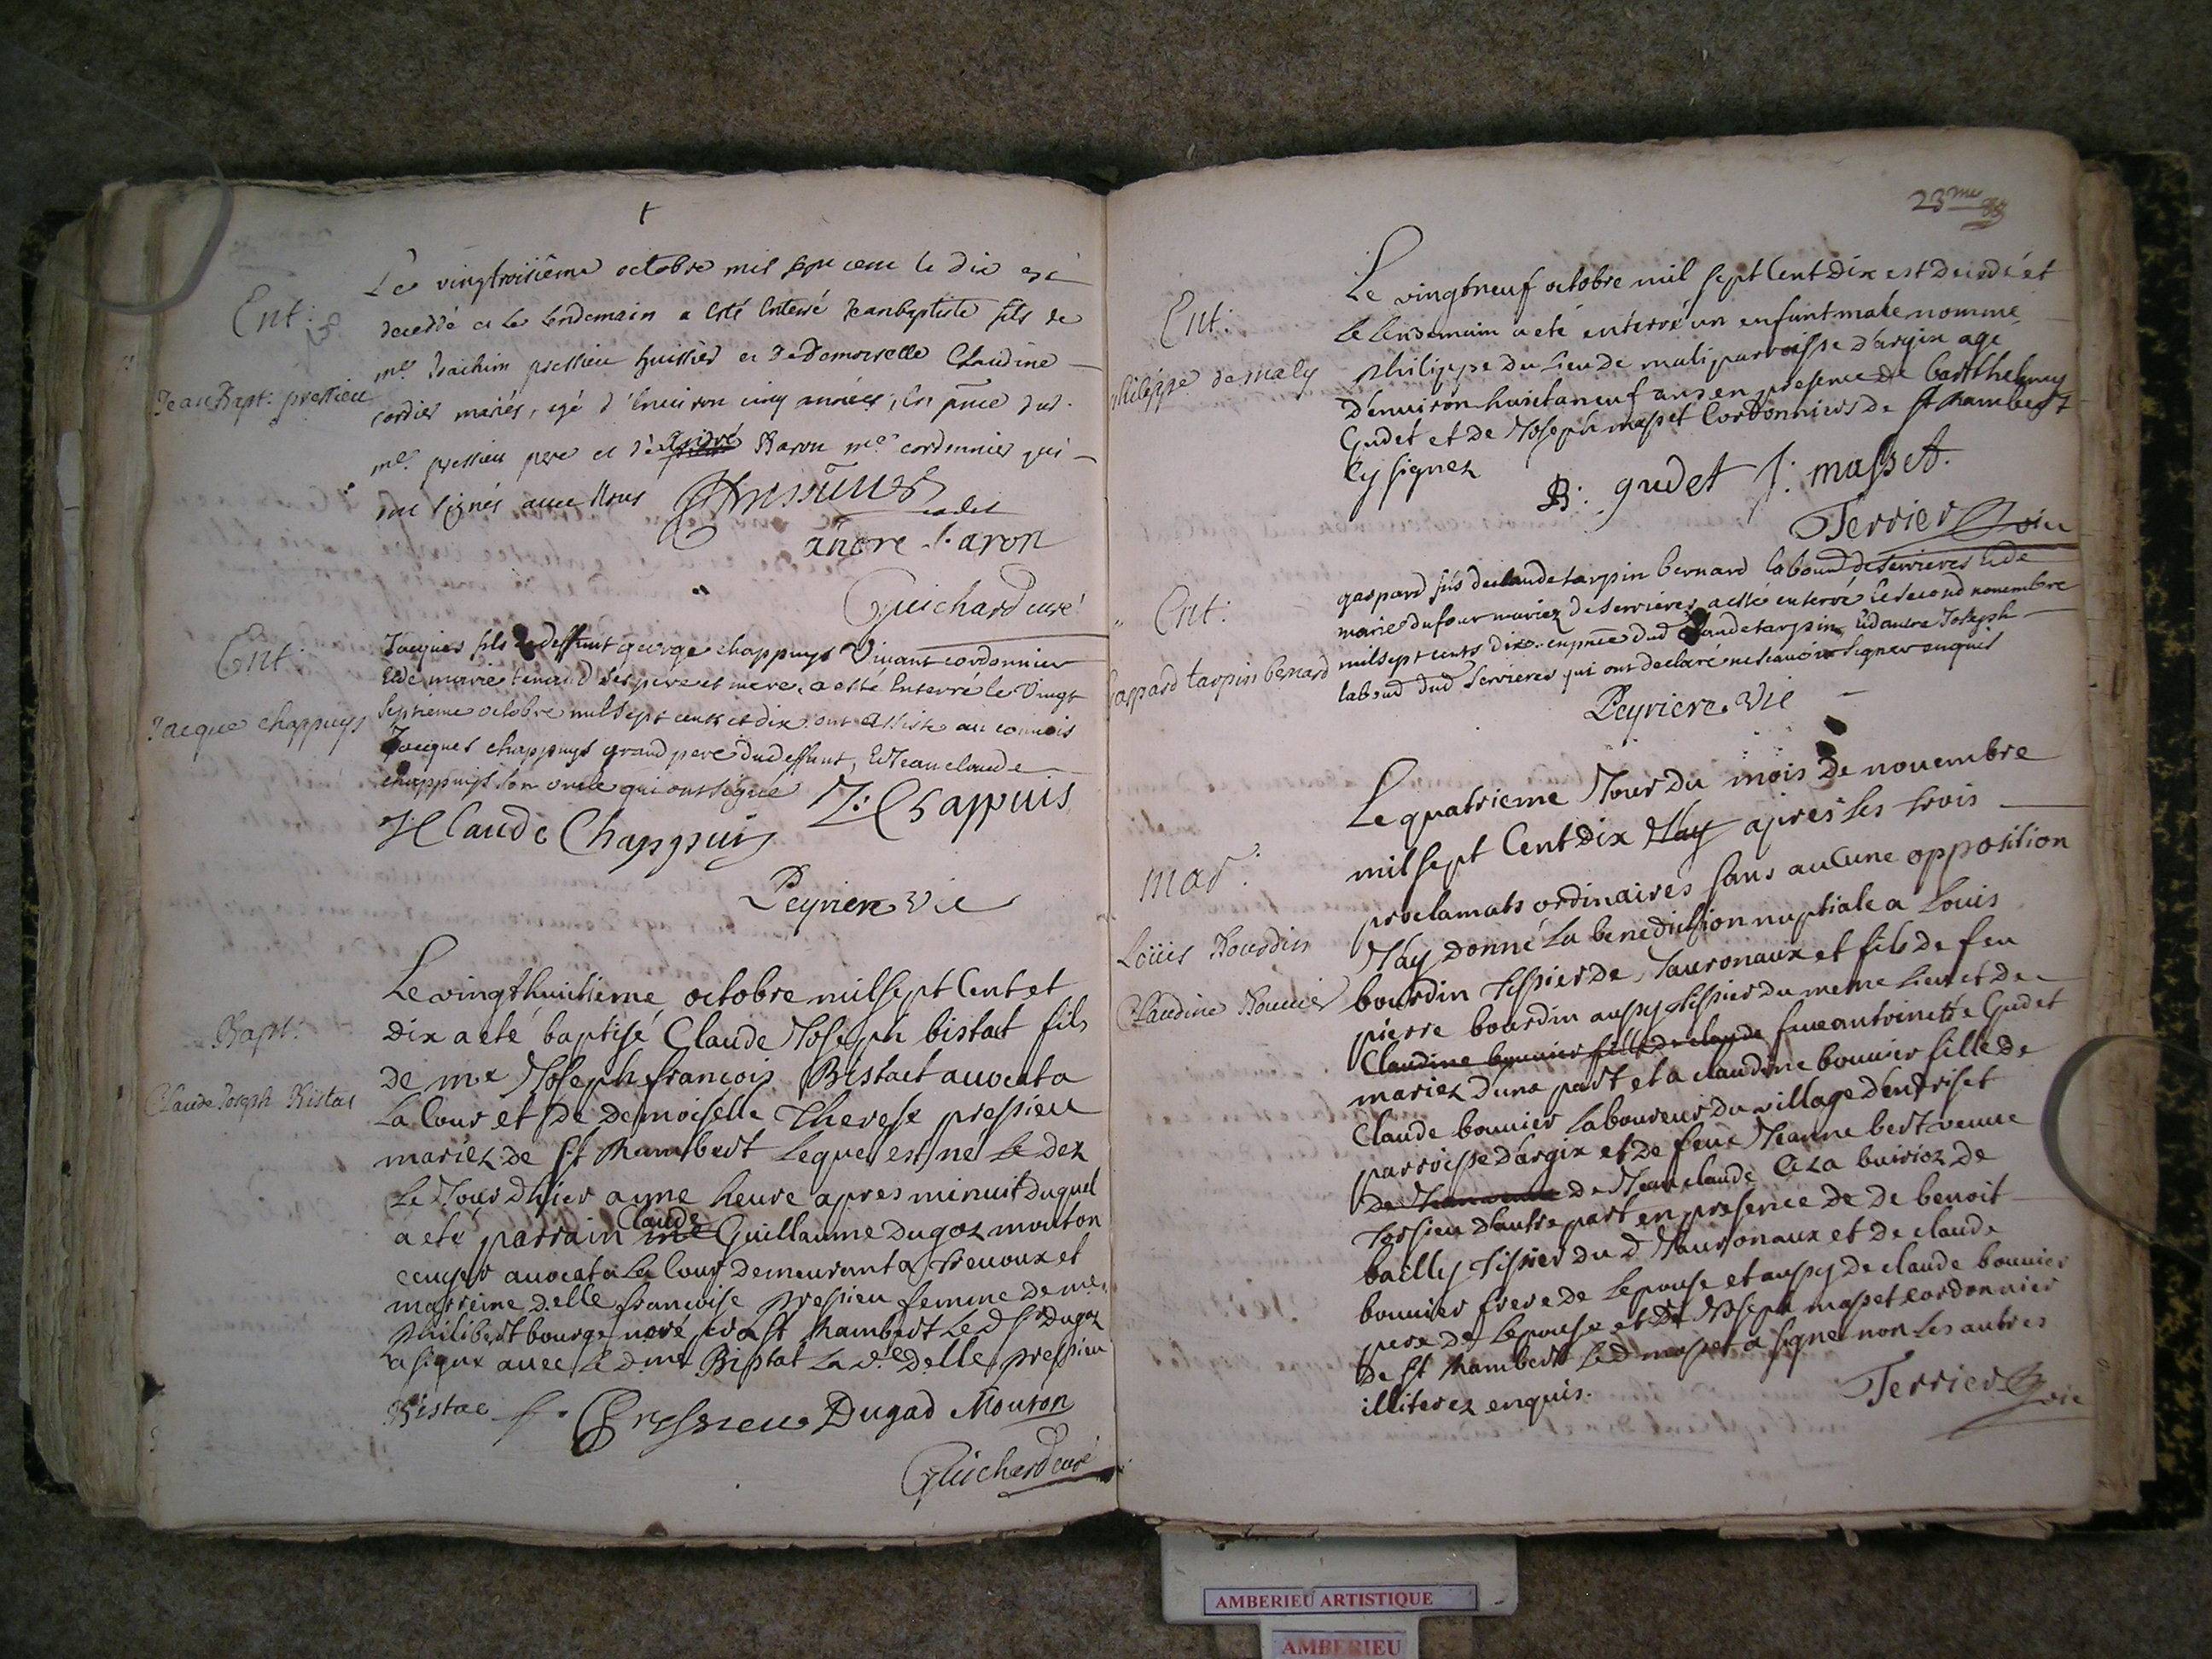 Ent:
Jean Bapt: pressieu
Le vingtroisième octobre mil sept cent le dix est
decedé et Le Lendemain a esté Enterré Jeanbaptiste fils de
me. Joachim pressieu huissier et de Demoiselle Claudine
cordier mariés, agé d'Environ cinq années, En pnce dud.
me. pressieu pere et de André Baron me. cordonnier qui
ont signés avec Nous
andré baron
Guichard curé
Ent:
Jacque chappuys
Jacques fils de deffunt george chappuys Vivant cordonnier
Et de marie tenand ses pere et mere, a esté Enterré le Vingt
septieme octobre mil sept cents et dix. ont assisté au convois
Jacques chappuys grand pere dud deffunt, Et Jean claude
chappuys son oncle qui ont signé
J: Chappuis
J Claude Chappuis
Peyriere Vic
Bapt:
Claude Joseph Bistac
Le vingt huitieme octobre mil sept Cent et
dix a eté baptisé Claude Joseph bistact fils
de me Joseph francois Bistact auocat a
La Cour et de Demoiselle Therese pressieu
mariez de St Rambert Lequel est né Le dez
Le Jour d'hier a une heure apres minuit duquel
a eté parrain me Claude Guillaume dugaz mouton
ecuyer auocat a La Cour demeurant a Treuoux et
marreine d.elle francoise pressieu femme de me.
philibert bourge noré St Rambert Le d Sr Dugaz
a signé auec Le d me Bistat La d.e d.elle pressieu
Bistac
f. Pressieu Dugad Mouton
Guichard curé
23me
Ent:
philippe de maly
Le vingtneuf octobre mil sept Cent Dix est decedé et
Le Lendemain a eté enterré un enfant male nommé
philippe du Lieu de mali parroisse d'argix agé
d'enuiron huict a neuf ans en presence de barthelemy
Gudet et de Joseph masset Cordonniers de St Rambert
Cy signez
B: gudet J: masset.
Terrier Vic
Ent:
Gaspard tarpin bernard
gaspard fils de claude tarpin bernard laboud de Serrieres Et de
marie dufour mariez de Serrieres a esté enterré le second nouembre
mil sept cents dix. en pnce dud Claude tarpin, Et d'autre Joseph
laboud dud Serrieres qui ont declaré ne scauoir signer enquis
Peyriere Vic
mar:
Loüis Bourdin
Claudine Bouuier
Le quatrieme Jour du mois De nouembre
mil sept Cent Dix J'ay apres Les trois
proclamats ordinaires sans aucune opposition
J'ay donné La benediction nuptiale a Louis
bourdin tissier de Jauronaux et fils de feu
pierre bourdin aussy tissier du meme Lieu et de
Claudine bouuier fille de claude feue antoinette Gudet
mariez d'une part et a claudine bouuier fille de
Claude bouuier Laboureur du village d'en
parroisse d'argix et de feue Jeanne bert veuue
De De Jean claude de
d'autre part en presence de de benoit
bailly tissier du d Jauronaux et de claude
bouuier frere de Lepouse et aussy de claude bouuier
pere de Lepouse et de Joseph masset cordonnier
De St Rambert Led masset a signé non Les autres
illiterez enquis.
Terrier Vic
AMBERIEU ARTISTIQUE
AMBERIEU